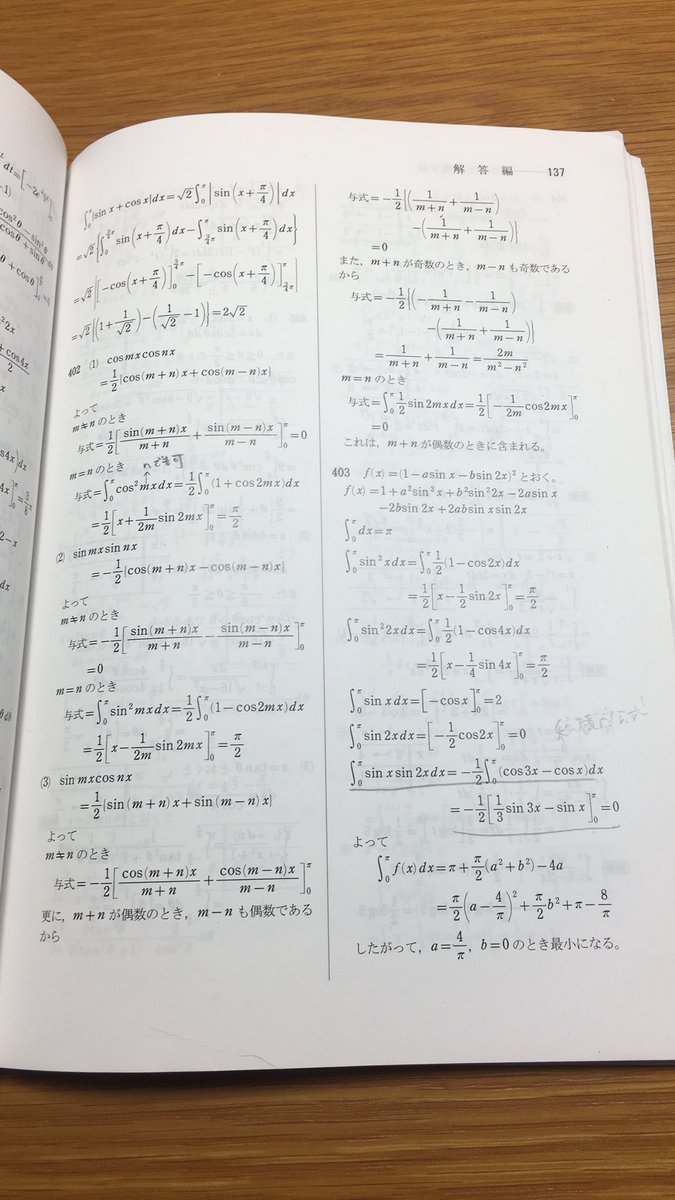 解答編 137
∫₀^π|sin x+cos x|dx=√2∫₀^π|sin(x+π/4)|dx
=√2{∫₀^{3/4π}sin(x+π/4)dx−∫_{3/4π}^π sin(x+π/4)dx}
=√2{[−cos(x+π/4)]₀^{3/4π}−[−cos(x+π/4)]_{3/4π}^π}
=√2{(1+1/√2)−(1/√2−1)}=2√2
402 (1) cos mx cos nx
=1/2{cos(m+n)x+cos(m−n)x}
よって
m≠n のとき
与式=1/2[sin(m+n)x/(m+n)+sin(m−n)x/(m−n)]₀^π=0
m=n のとき nでも可
与式=∫₀^π cos²mx dx=1/2∫₀^π(1+cos2mx)dx
=1/2[x+1/2m sin 2mx]₀^π=π/2
(2) sin mx sin nx
=−1/2{cos(m+n)x−cos(m−n)x}
よって
m≠n のとき
与式=−1/2[sin(m+n)x/(m+n)−sin(m−n)x/(m−n)]₀^π
=0
m=n のとき
与式=∫₀^π sin²mx dx=1/2∫₀^π(1−cos2mx)dx
=1/2[x−1/2m sin 2mx]₀^π=π/2
(3) sin mx cos nx
=1/2{sin(m+n)x+sin(m−n)x}
よって
m≠n のとき
与式=−1/2[cos(m+n)x/(m+n)+cos(m−n)x/(m−n)]₀^π
更に，m+n が偶数のとき，m−n も偶数である
から
与式=−1/2{(1/(m+n)+1/(m−n))
−(1/(m+n)+1/(m−n))}
=0
また，m+n が奇数のとき，m−n も奇数である
から
与式=−1/2{(−1/(m+n)−1/(m−n))
−(1/(m+n)+1/(m−n))}
=1/(m+n)+1/(m−n)=2m/(m²−n²)
m=n のとき
与式=∫₀^π 1/2 sin 2mx dx=1/2[−1/2m cos2mx]₀^π
=0
これは，m+n が偶数のときに含まれる。
403 f(x)=(1−a sin x−b sin 2x)² とおく。
f(x)=1+a²sin²x+b²sin²2x−2a sin x
−2b sin 2x+2ab sin x sin 2x
∫₀^π dx=π
∫₀^π sin²x dx=∫₀^π 1/2(1−cos2x)dx
=1/2[x−1/2 sin 2x]₀^π=π/2
∫₀^π sin²2x dx=∫₀^π 1/2(1−cos4x)dx
=1/2[x−1/4 sin 4x]₀^π=π/2
∫₀^π sin x dx=[−cos x]₀^π=2
∫₀^π sin 2x dx=[−1/2 cos2x]₀^π=0
∫₀^π sin x sin 2x dx=−1/2∫₀^π(cos3x−cos x)dx
=−1/2[1/3 sin 3x−sin x]₀^π=0
よって
∫₀^π f(x)dx=π+π/2(a²+b²)−4a
=π/2(a−4/π)²+π/2 b²+π−8/π
したがって，a=4/π，b=0 のとき最小になる。